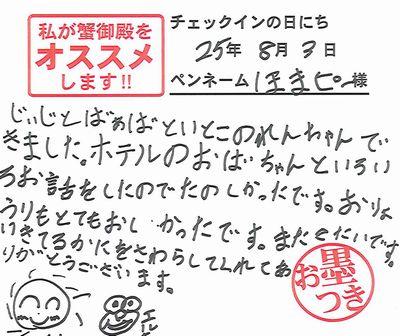 私が蟹御殿を
オススメ
します!!
チェックインの日にち
25年 8月 3日
ペンネーム ほまピー様
じぃじとばぁばといとこのれんちゃんで
きました。ホテルのおばちゃんといろい
ろお話をしたのでたのしかったです。おりょ
うりもとてもおしかったです。またきたいです。
いきてるかにをさわらしてくれてあ
りがとうございます。
墨
おつき
エル